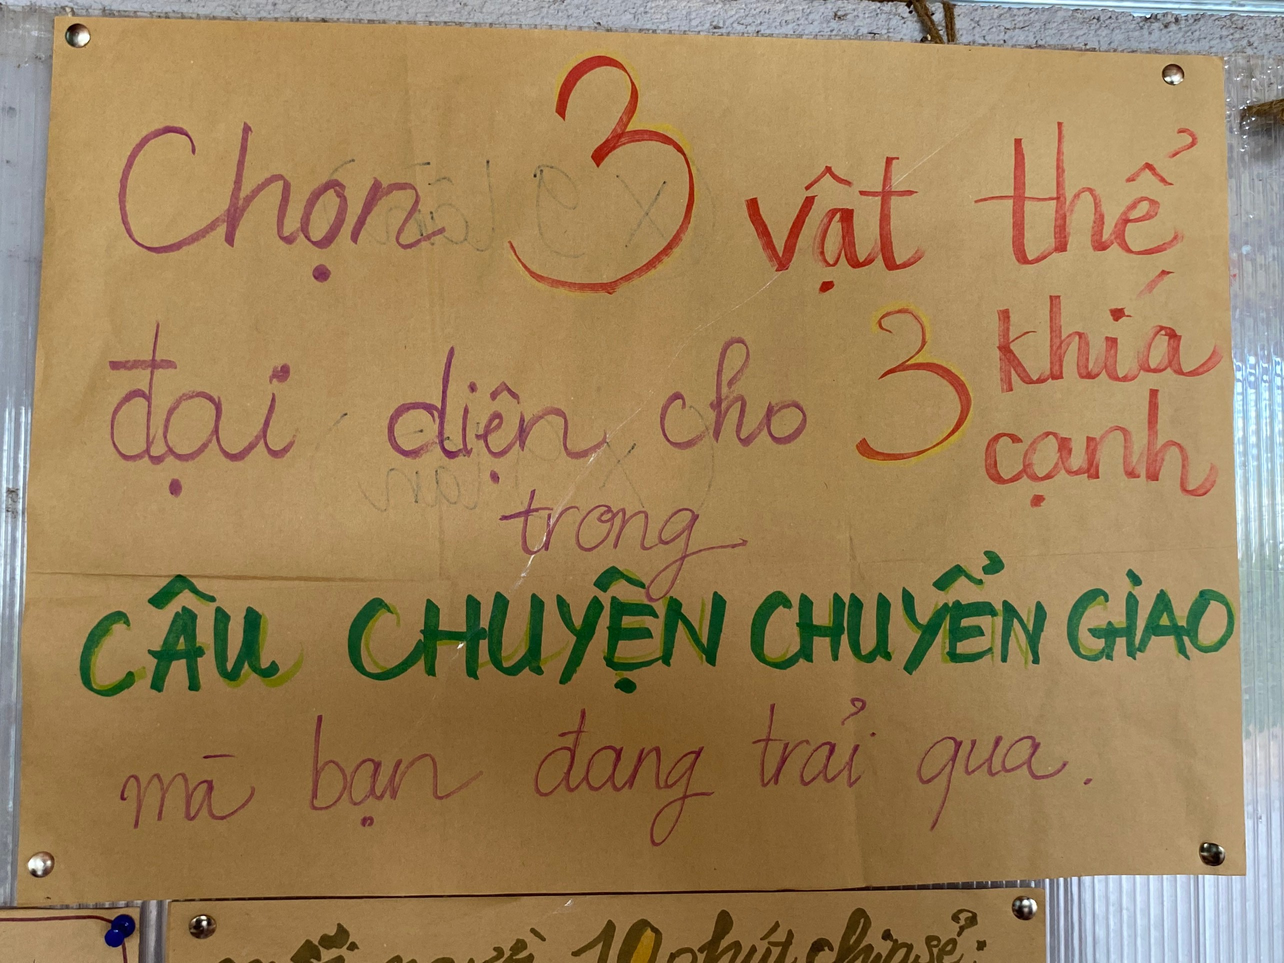 Chọn 3 vật thể
đại diện cho 3 khía cạnh
trong
CÂU CHUYỆN CHUYỂN GIAO
mà bạn đang trải qua.
mỗi người 10 phút chia sẻ: